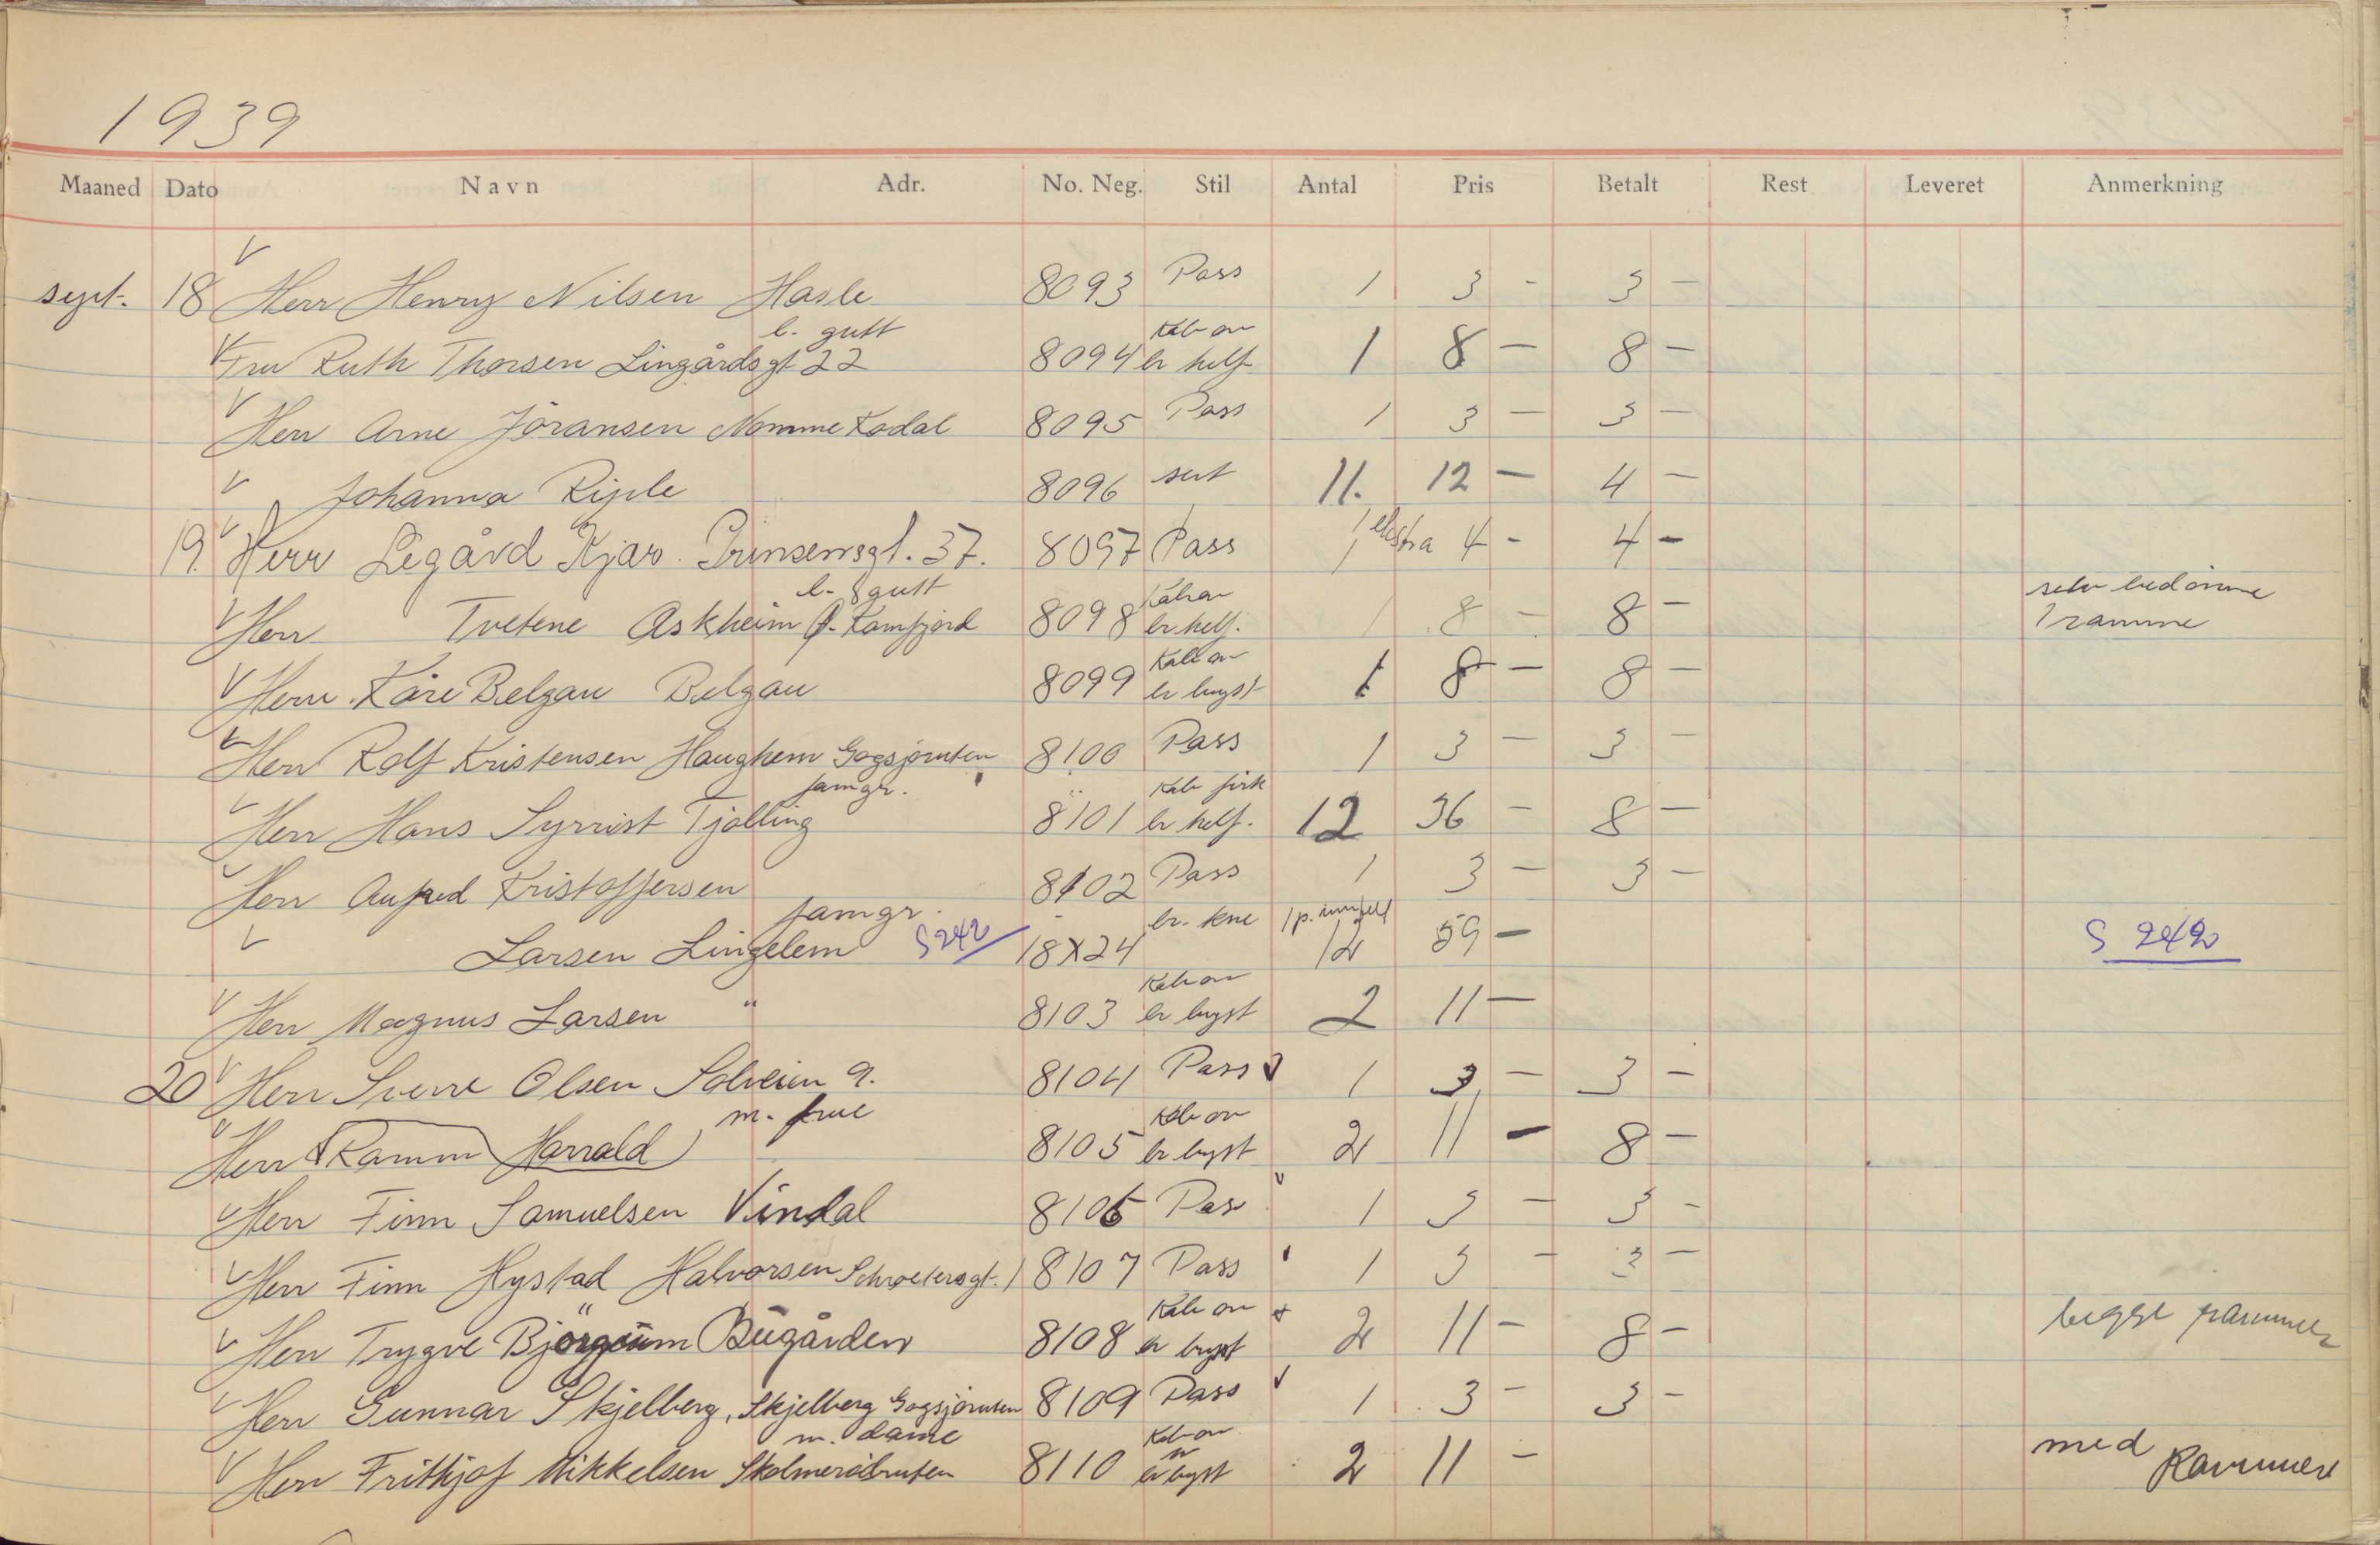 1939
Maaned Dato Navn Adr. No. Neg. Stil Antal Pris Betalt Rest Leveret Anmerkning
sept. 18 Herr Henry Nilsen Hasle 8093 Pass 1 3 - 3 -
l. gutt Kab
Fru Ruth Thorsen Lingårdsgt 22 8094 br helf 1 8 - 8 -
Herr Arne Jöransen Nomme Kodal 8095 Pass 1 3 - 3 -
Johanna 8096 11. 12 - 4 -
19. Herr Legård Kjær. Prinsensgt. 37. 8097 Pass 1 ekstra 4 - 4 -
l. gutt selv
Herr Tvetene Askheim Kamfjord 8098 br helf. 1 8 - 8 - 1 ramme
Kab
Herr. Kåre Belgau Belgau 8099 br bryst 1 8 - 8 -
Herr Rolf Kristensen Haughem Gogsjøruten 8100 Pass 1 3 - 3 -
famgr. Kab
Herr Hans Syrrist Tjølling 8101 br helf. 12 36 - 8 -
Herr Kristoffersen 8102 Pass 1 3 - 3 -
famgr. br. kne
Larsen Lingelem S 242 18X24 12 59 - S 242
Kab
Herr Magnus Larsen " 8103 br bryst 2 11 -
20 Herr Sverre Olsen Solveien 9. 8104 Pass 1 3 - 3 -
m. frue Kab
Herr Ramm Harald 8105 br bryst 2 11 - 8 -
Herr Finn Samuelsen Vindal 8106 Pass 1 3 - 3 -
Herr Finn Hystad Halvorsen Schrøtersgt. 1 8107 Pass 1 3 - 3 -
Kab
Herr Trygve Bugården 8108 br bryst 2 11 - 8 - begge rammer
Herr Gunnar Skjelberg, Skjelberg Gogsjøruten 8109 Pass 1 3 - 3 -
m. dame Kab
Herr Frithjof Mikkelsen 8110 br bryst 2 11 - med Rammer